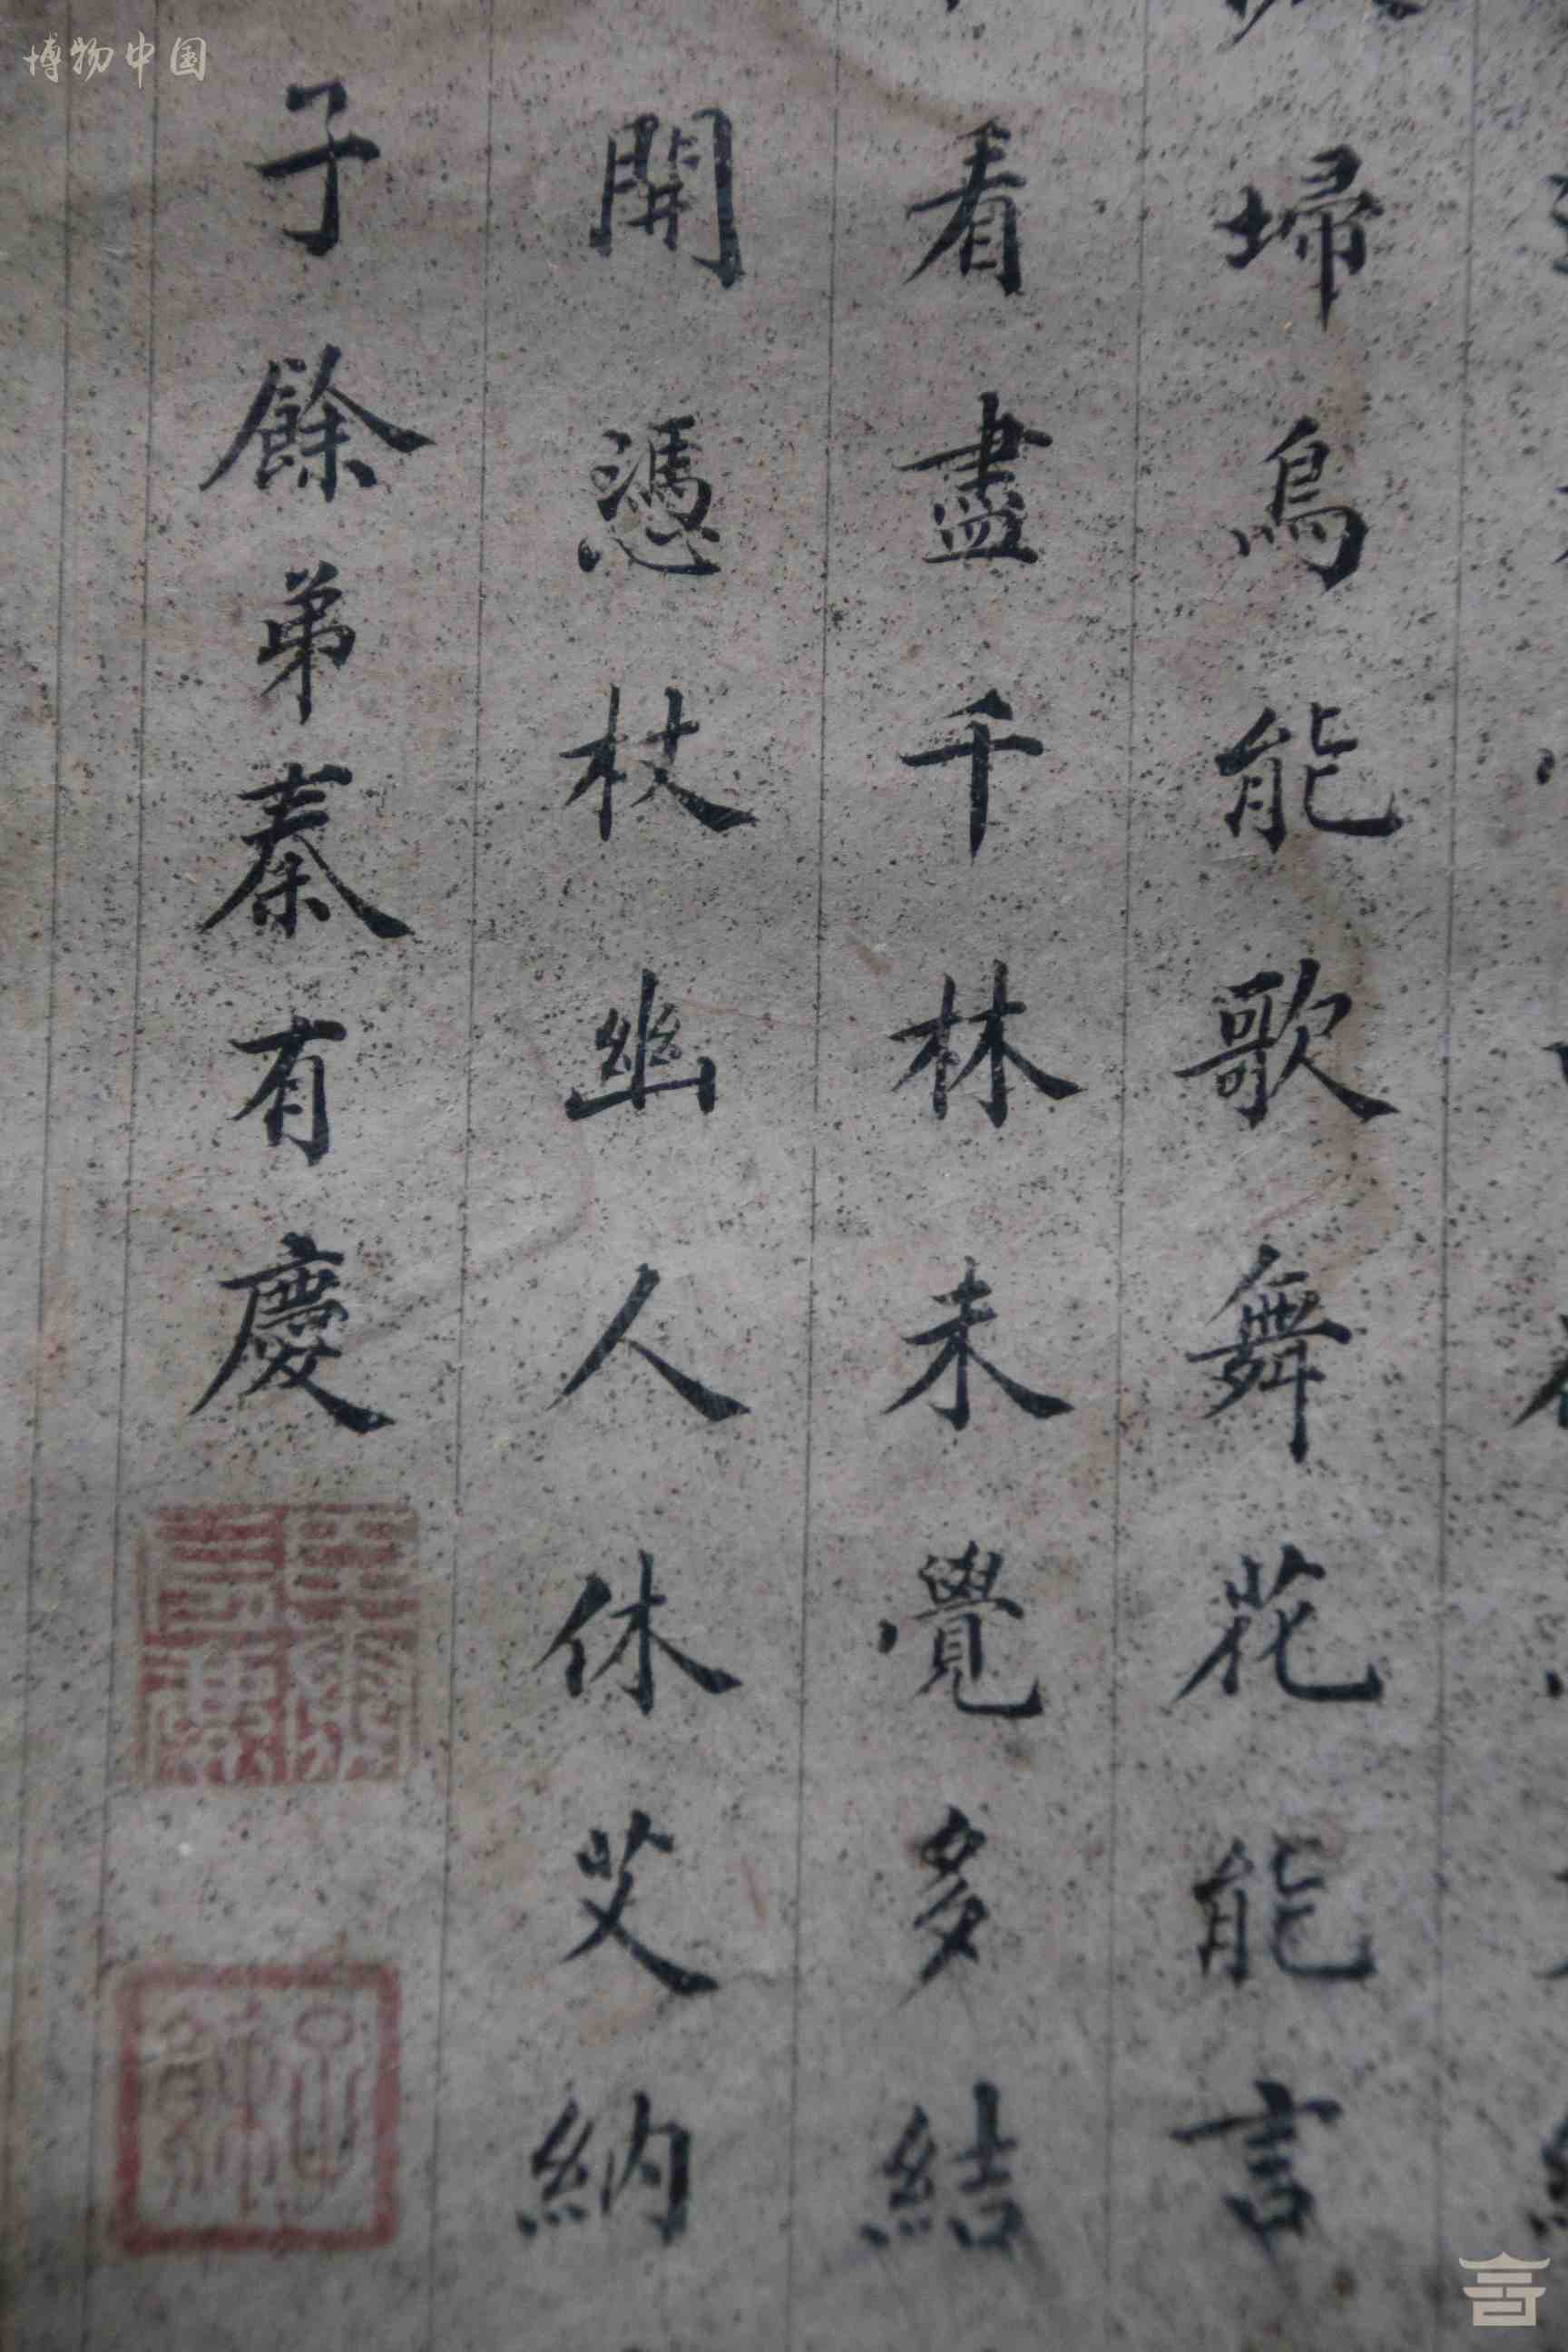 埽鳥能歌舞花能言
看盡千林未覺多結
開憑杖幽人休艾納
子餘弟秦有慶
博物中国